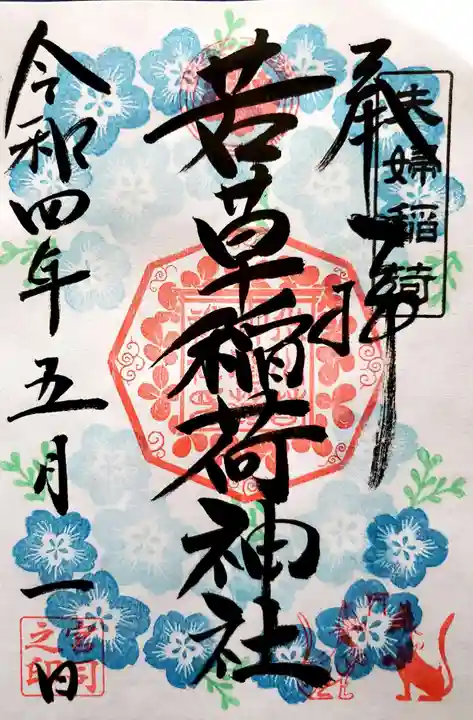 奉拝
夫婦稲荷
若草稲荷神社
令和四年五月一日
宮司
之印